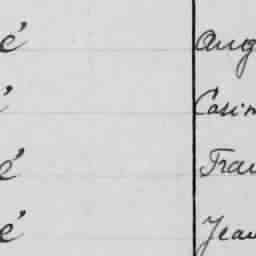 é Aug
é Casim
é Fran
é Jean